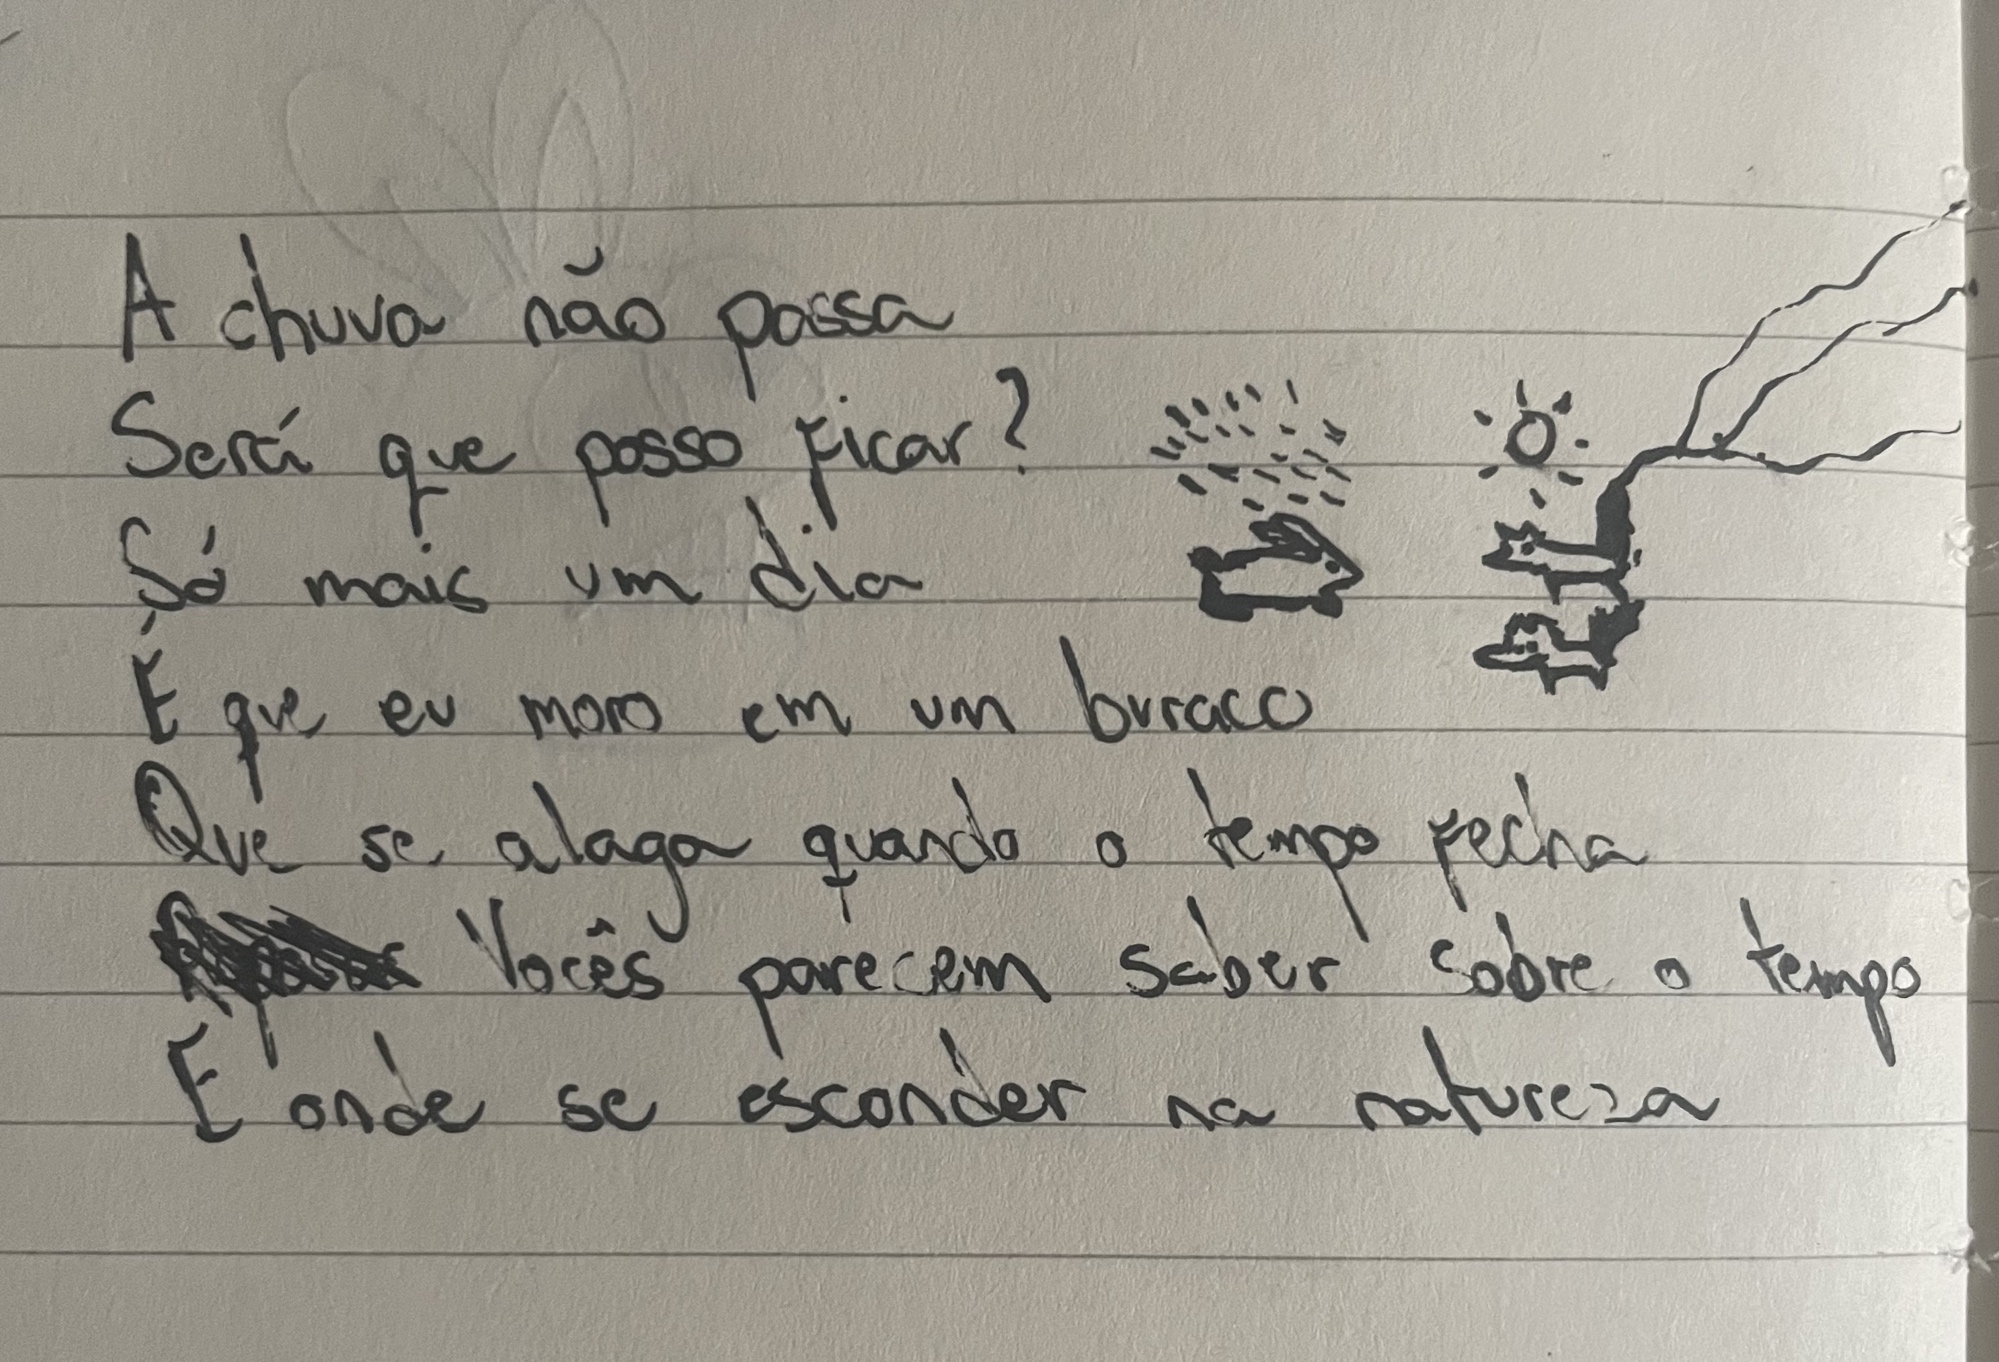 A chuva não passa
Será que posso ficar?
Só mais um dia
É que eu moro em um buraco
Que se alaga quando o tempo fecha
Vocês parecem saber sobre o tempo
E onde se esconder na natureza